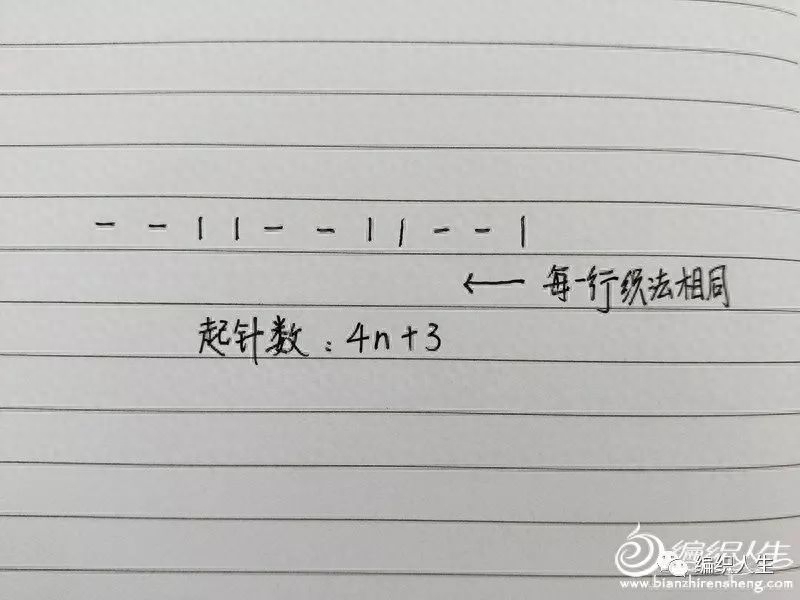 - - | | - - | | - - |
← 每一行织法相同
起针数：4n+3
编织人生
编织人生
www.bianzhirensheng.com